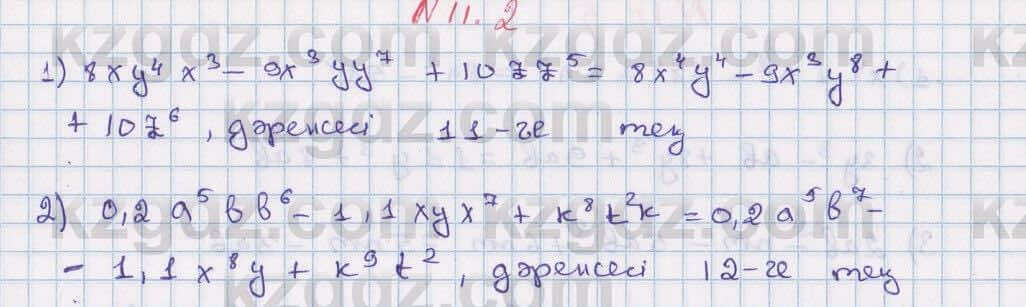 N 11. 2
1) 8xy⁴x³ - 9x³yy⁷ + 10zz⁵ = 8x⁴y⁴ - 9x³y⁸ +
+ 10z⁶, дәрежесі 11-ге тең
2) 0,2a⁵bb⁶ - 1,1xyx⁷ + k⁸t²k = 0,2a⁵b⁷ -
- 1,1x⁸y + k⁹t², дәрежесі 12-ге тең